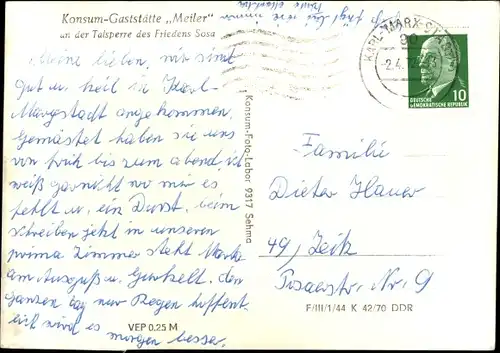 Konsum-Gaststätte „Meiler"
an der Talsperre des Friedens Sosa
Meine lieben, wir sind
gut u. heil in Karl-
Marxstadt angekommen.
Gemästet haben sie uns
von früh bis zum abend, ich
weiß garnicht wo mir es
fehlt u. ein Durst, beim
schreiben jetzt in unseren
prima Zimmer steht
am u. den
ganzen Tag nur Regen hoffent
lich wird es morgen besser.
VEP 0.25 M
Konsum-Foto-Labor 9317 Sehma
KARL-MARX-STADT
90
-2.4.
10
DEUTSCHE
DEMOKRATISCHE REPUBLIK
Familie
Dieter Hauer
49, Zeitz
Nr. 9
F/III/1/44 K 42/70 DDR